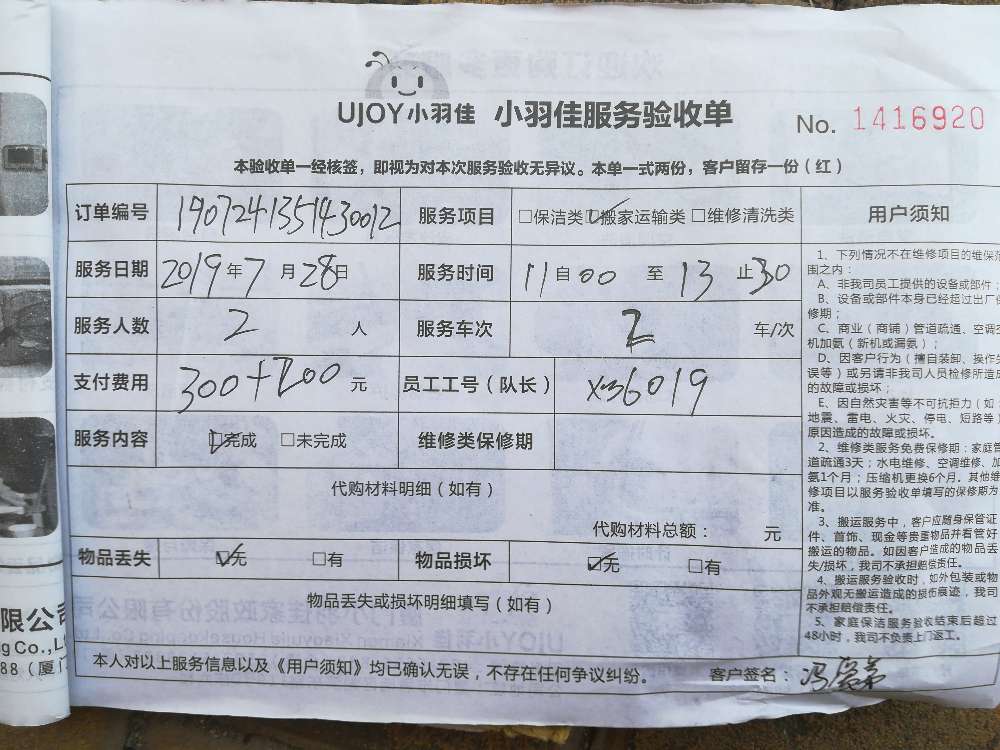 UJOY小羽佳 小羽佳服务验收单 No. 1416920
本验收单一经核签，即视为对本次服务验收无异议。本单一式两份，客户留存一份（红）
订单编号 1907241351430012 服务项目 □保洁类 ☑搬家运输类 □维修清洗类
服务日期 2019年7月28日 服务时间 11自00至13止30
服务人数 2人 服务车次 2车/次
支付费用 300+200元 员工工号（队长） X36019
服务内容 ☑完成 □未完成 维修类保修期
代购材料明细（如有）
代购材料总额： 元
物品丢失 ☑无 □有 物品损坏 ☑无 □有
物品丢失或损坏明细填写（如有）
本人对以上服务信息以及《用户须知》均已确认无误，不存在任何争议纠纷。 客户签名：冯
用户须知
1、下列情况不在维修项目的维保范
围之内：
A、非我司员工提供的设备或部件；
B、设备或部件本身已经超过出厂保
修期；
C、商业（商铺）管道疏通、空调空
机加氨（新机或漏氨）；
D、因客户行为（擅自装卸、操作失
误等）或另请非我司人员检修所造成
的故障或损坏；
E、因自然灾害等不可抗拒力（如：
地震、雷电、火灾、停电、短路等）
原因造成的故障或损坏。
2、维修类服务免费保修期：家庭管
道疏通3天；水电维修、空调维修、加
氨1个月；压缩机更换6个月。其他维
修项目以服务验收单填写的保修期为
准。
3、搬运服务中，客户应随身保管证
件、首饰、现金等贵重物品并看管好
搬运的物品。如因客户造成的物品丢
失/损坏，我司不承担赔偿责任。
4、搬运服务验收时，如外包装或物
品外观无搬运造成的损伤痕迹，我司
不承担赔偿责任。
5、家庭保洁服务验收结束后超过
48小时，我司不负责上门返工。
限公司
g Co.,L
88（厦门